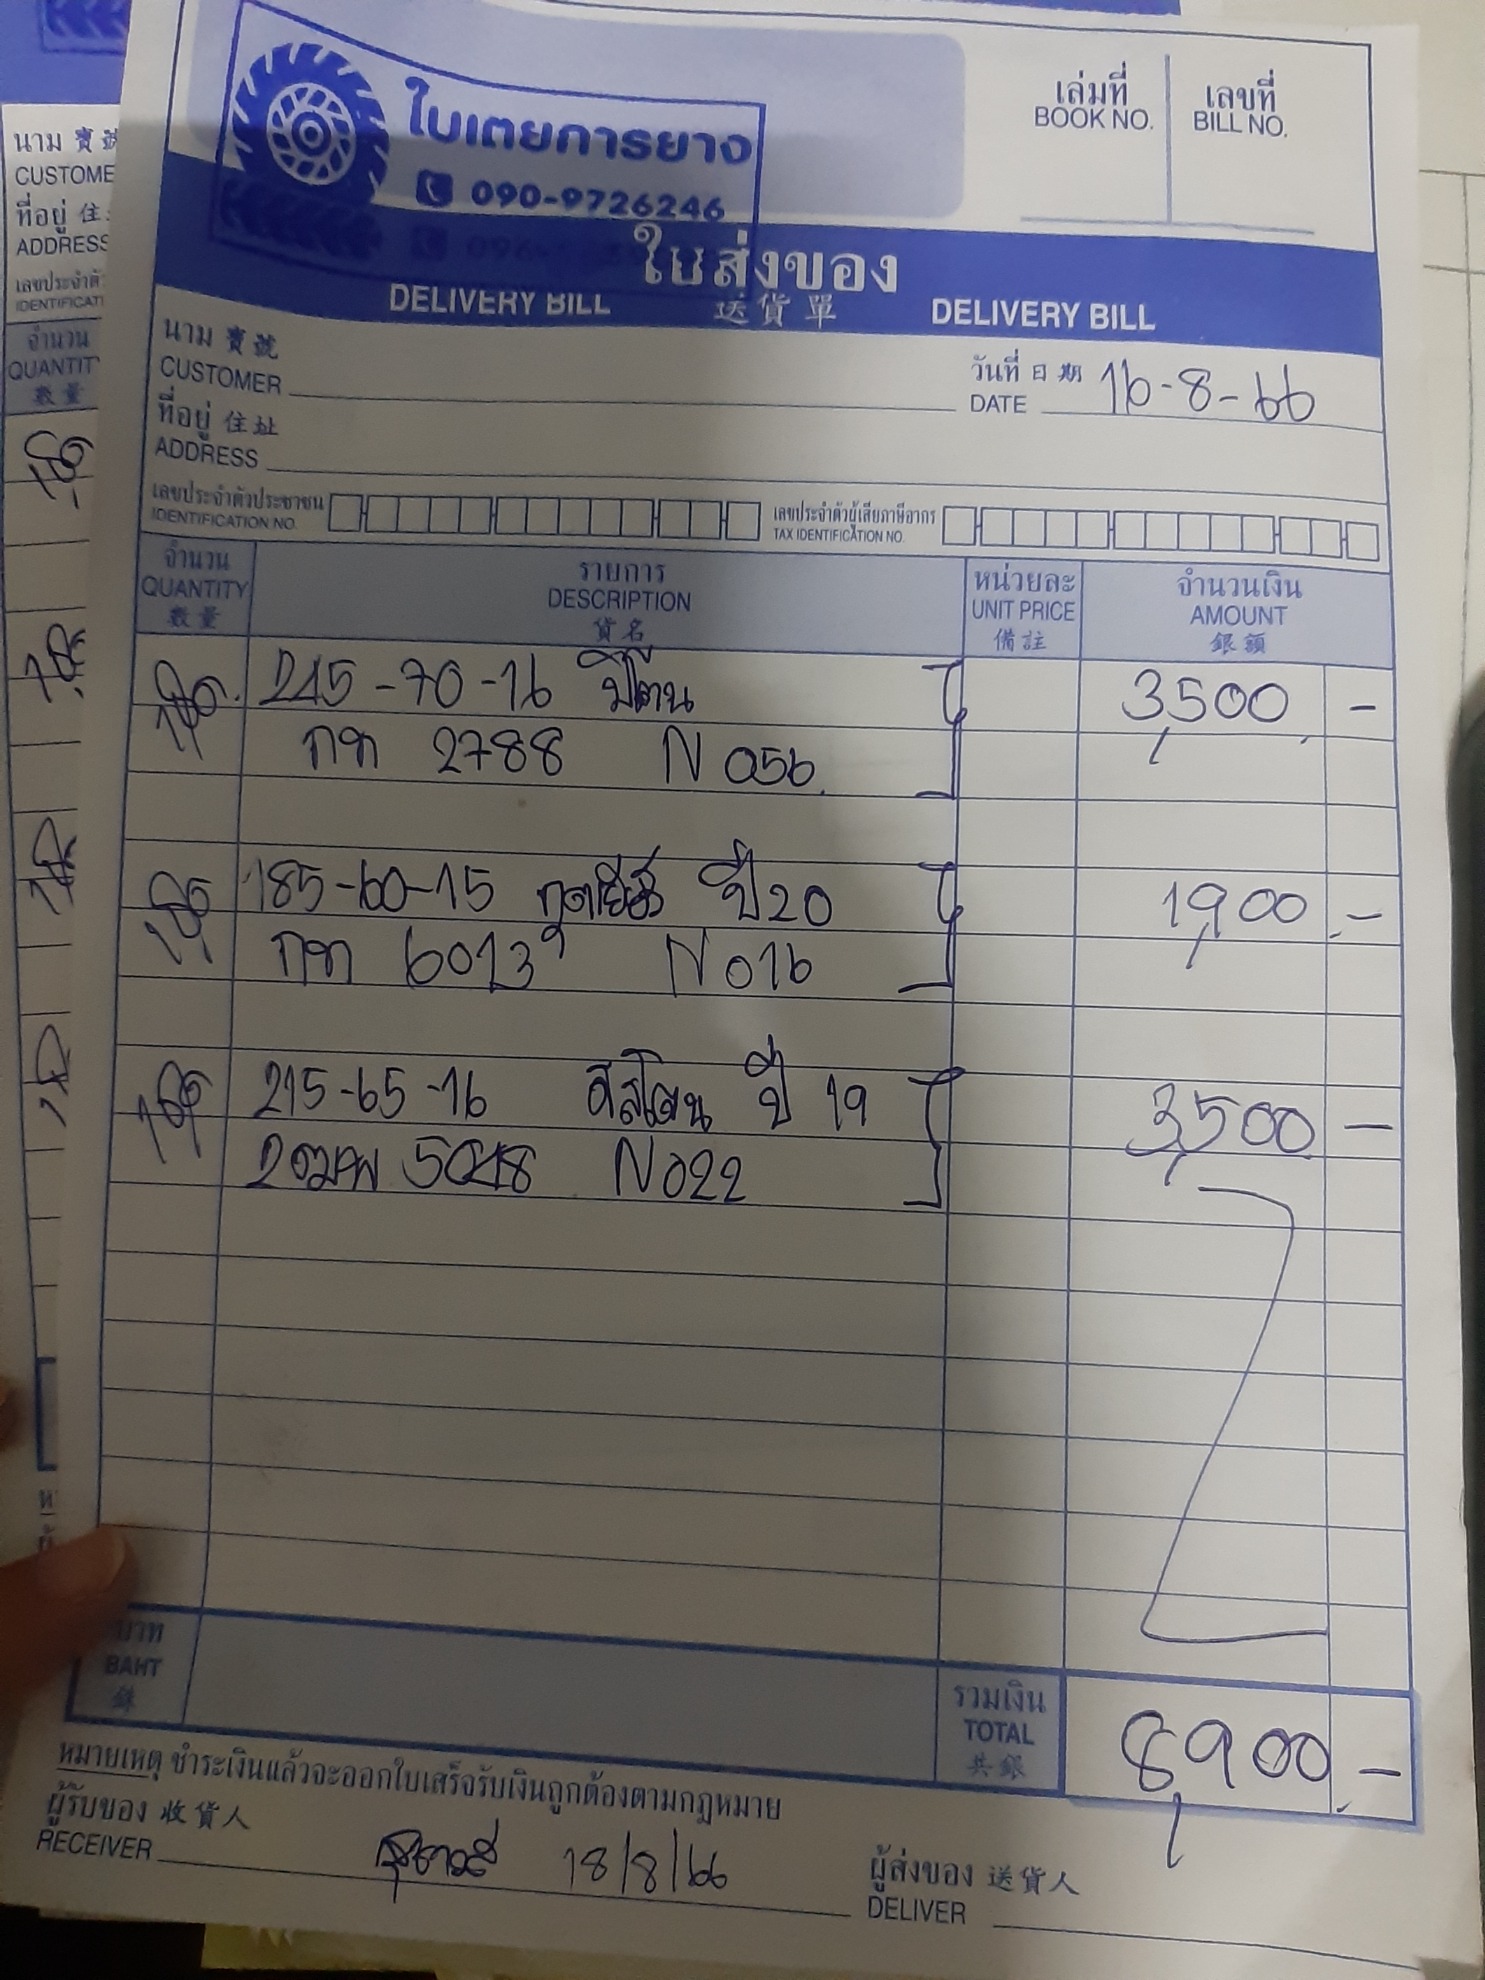 ใบเตยการยาง
090-9726246
เล่มที่ เลขที่
BOOK NO. BILL NO.
ใบส่งของ
DELIVERY BILL 送貨單 DELIVERY BILL
นาม 寳號
CUSTOMER
วันที่ 日期 16-8-66
DATE
ที่อยู่ 住址
ADDRESS
เลขประจำตัวประชาชน
IDENTIFICATION NO.
เลขประจำตัวผู้เสียภาษีอากร
TAX IDENTIFICATION NO.
จำนวน รายการ หน่วยละ จำนวนเงิน
QUANTITY DESCRIPTION UNIT PRICE AMOUNT
數量 貨名 備註 銀額
70-16 3,500 -
2788 N 056
185-60-15 ปี 20 1,900 .-
6013 N 016
215-65-16 ปี 19 3,500 -
N 022
บาท
BAHT
銖
รวมเงิน
TOTAL
共銀
8,900 .-
หมายเหตุ ชำระเงินแล้วจะออกใบเสร็จรับเงินถูกต้องตามกฎหมาย
ผู้รับของ 收貨人
RECEIVER 18/8/66
ผู้ส่งของ 送貨人
DELIVER
นาม 寳號
CUSTOME
ที่อยู่ 住
ADDRESS
เลขประจำตั
IDENTIFICATI
จำนวน
QUANTIT
數量